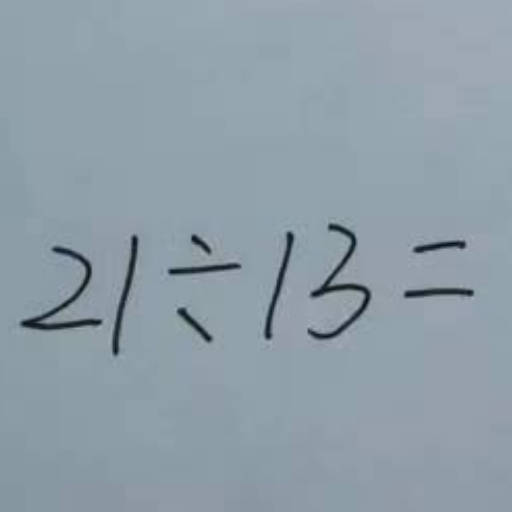 21÷13=